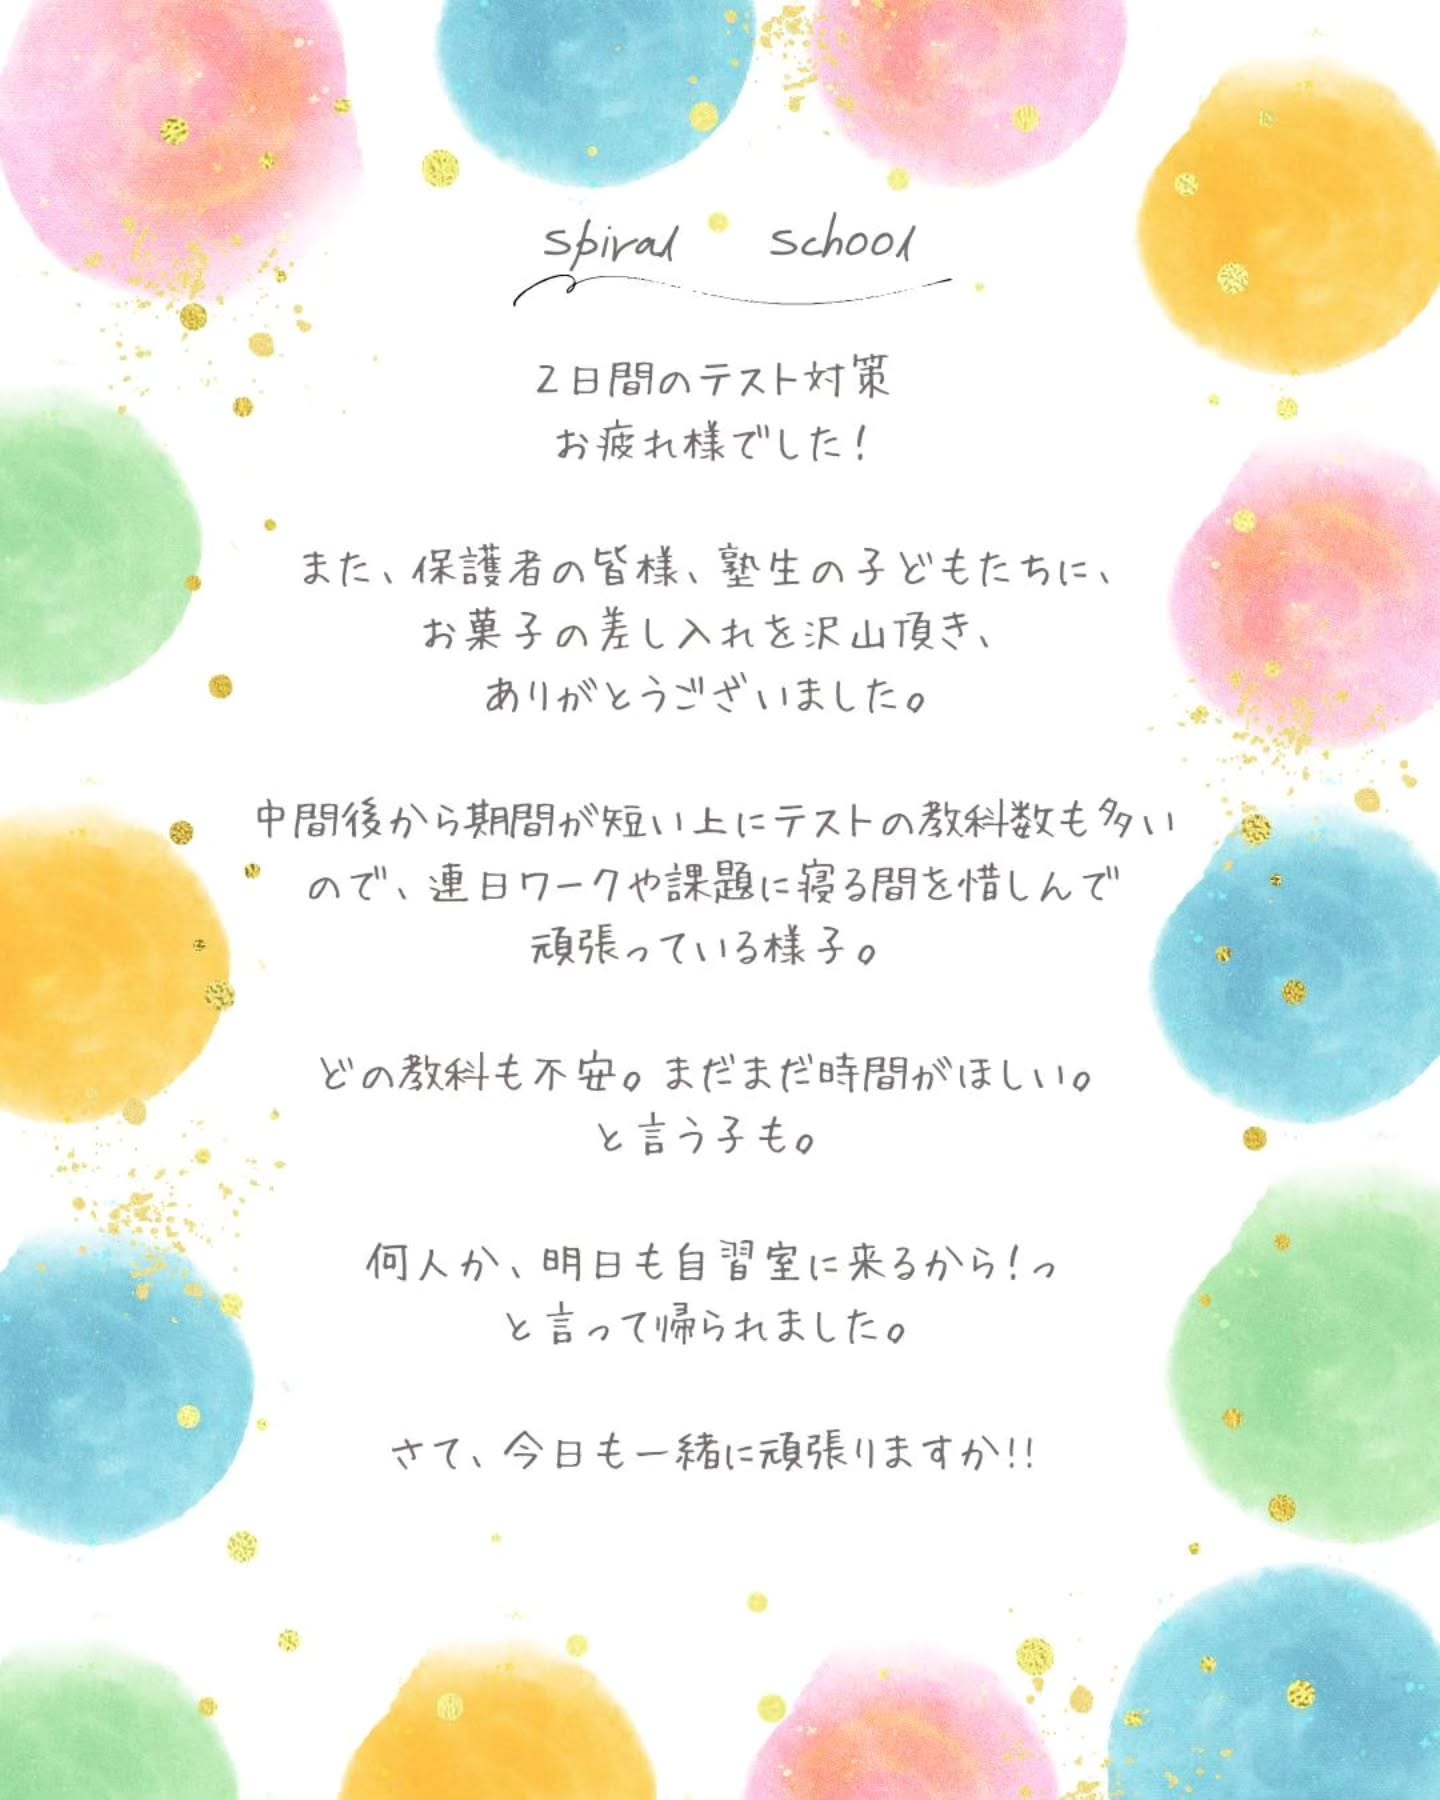 spiral school
2日間のテスト対策
お疲れ様でした!
また、保護者の皆様、塾生の子どもたちに、
お菓子の差し入れを沢山頂き、
ありがとうございました。
中間後から期間が短い上にテストの教科数も多い
ので、連日ワークや課題に寝る間を惜しんで
頑張っている様子。
どの教科も不安。まだまだ時間がほしい。
と言う子も。
何人か、明日も自習室に来るから!っ
と言って帰られました。
さて、今日も一緒に頑張りますか!!